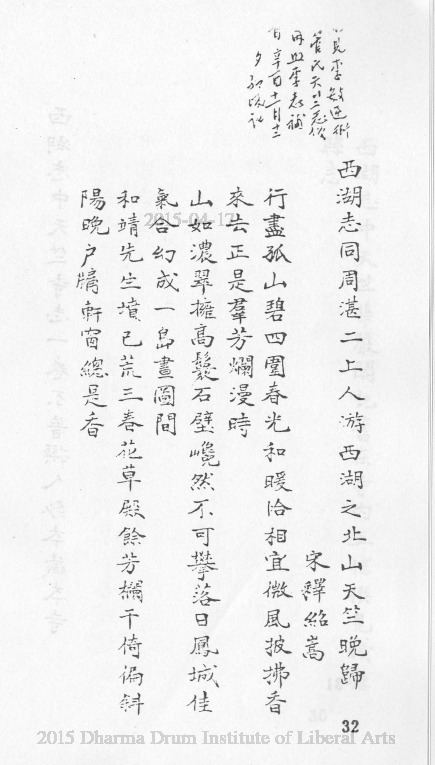 西湖志同周湛二上人游西湖之北山天竺晚歸
宋釋紹嵩
行盡孤山碧四圍春光和暖恰相宜微風披拂香
來去正是羣芳爛漫時
山如濃翠擁高鬟石壁巉然不可攀落日鳳城佳
氣合幻成一島畫圖間
和靖先生墳已荒三春花草殿餘芳欄干倚徧斜
陽晚戶牖軒窗總是香
2015-04-17
32
2015 Dharma Drum Institute of Liberal Arts